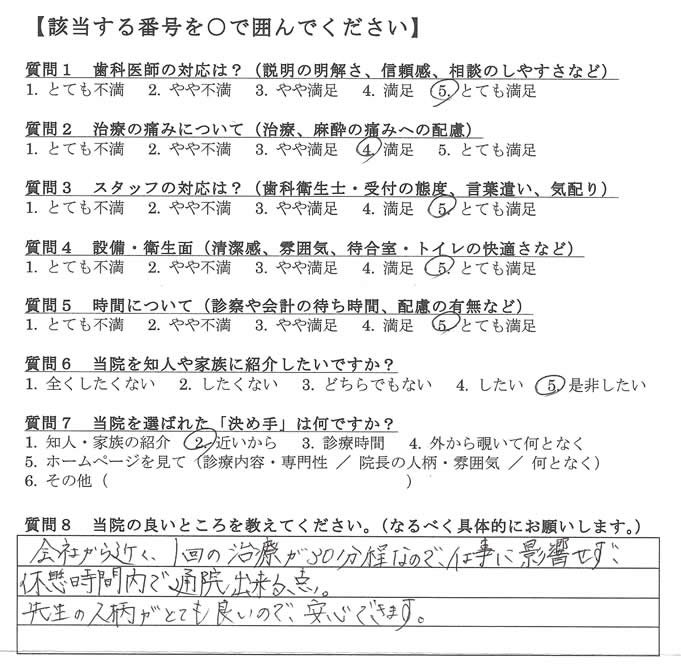 【該当する番号を○で囲んでください】
質問1 歯科医師の対応は？（説明の明解さ、信頼感、相談のしやすさなど）
1. とても不満 2. やや不満 3. やや満足 4. 満足 5. とても満足
質問2 治療の痛みについて（治療、麻酔の痛みへの配慮）
1. とても不満 2. やや不満 3. やや満足 4. 満足 5. とても満足
質問3 スタッフの対応は？（歯科衛生士・受付の態度、言葉遣い、気配り）
1. とても不満 2. やや不満 3. やや満足 4. 満足 5. とても満足
質問4 設備・衛生面（清潔感、雰囲気、待合室・トイレの快適さなど）
1. とても不満 2. やや不満 3. やや満足 4. 満足 5. とても満足
質問5 時間について（診察や会計の待ち時間、配慮の有無など）
1. とても不満 2. やや不満 3. やや満足 4. 満足 5. とても満足
質問6 当院を知人や家族に紹介したいですか？
1. 全くしたくない 2. したくない 3. どちらでもない 4. したい 5. 是非したい
質問7 当院を選ばれた「決め手」は何ですか？
1. 知人・家族の紹介 2. 近いから 3. 診療時間 4. 外から覗いて何となく
5. ホームページを見て（診療内容・専門性 ／ 院長の人柄・雰囲気 ／ 何となく）
6. その他（ ）
質問8 当院の良いところを教えてください。（なるべく具体的にお願いします。）
会社から近く、1回の治療が30分程なので、仕事に影響せず、
休憩時間内で通院出来る点。
先生の人柄がとても良いので、安心できます。